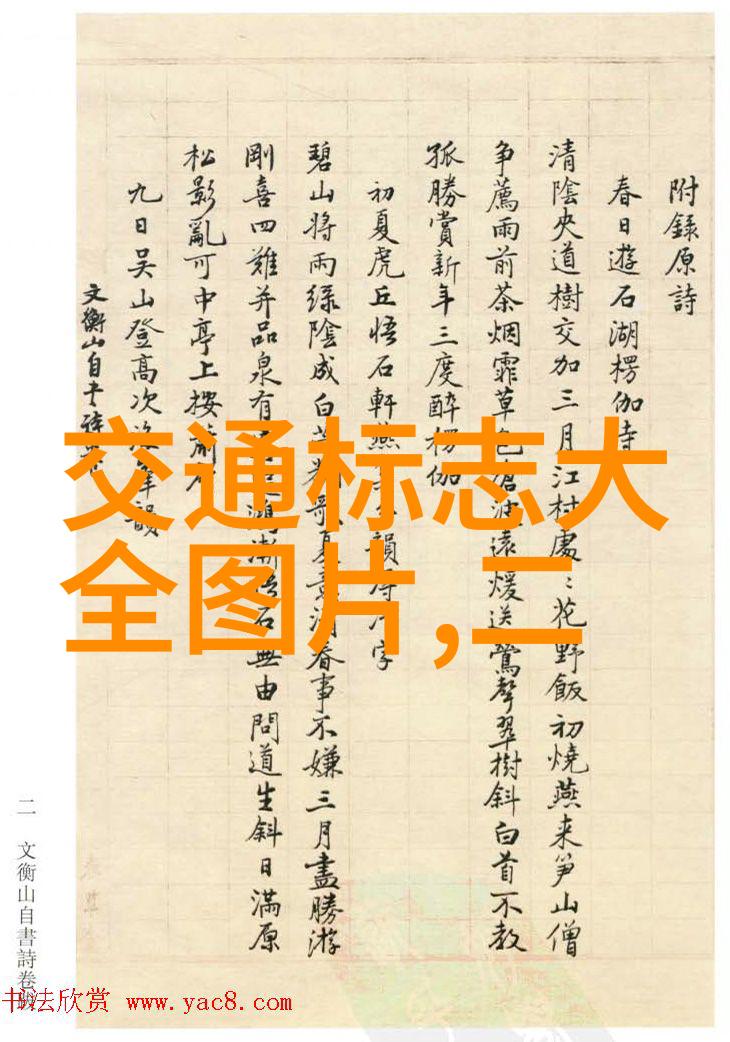 附錄原詩
春日遊石湖楞伽寺
清陰夾道樹交加三月江村處〻花野飯初燒燕来笋山僧
争薦雨前茶烟霏草色滄波遠煖送鶯聲翠樹斜白首不教
孤勝賞新年三度醉楞伽
初夏虎丘悟石軒燕韻字
碧山將雨綠陰成白歌夏春事不嫌三月盡勝游
剛喜四難并品泉有鴻漸悟石無由問道生斜日滿原
松影亂可中亭上按
九日吴山登高次韻
文衡山自书
交通标志大
全图片,二
二 文衡山自書詩卷跋
书法欣赏 www.yac8.com